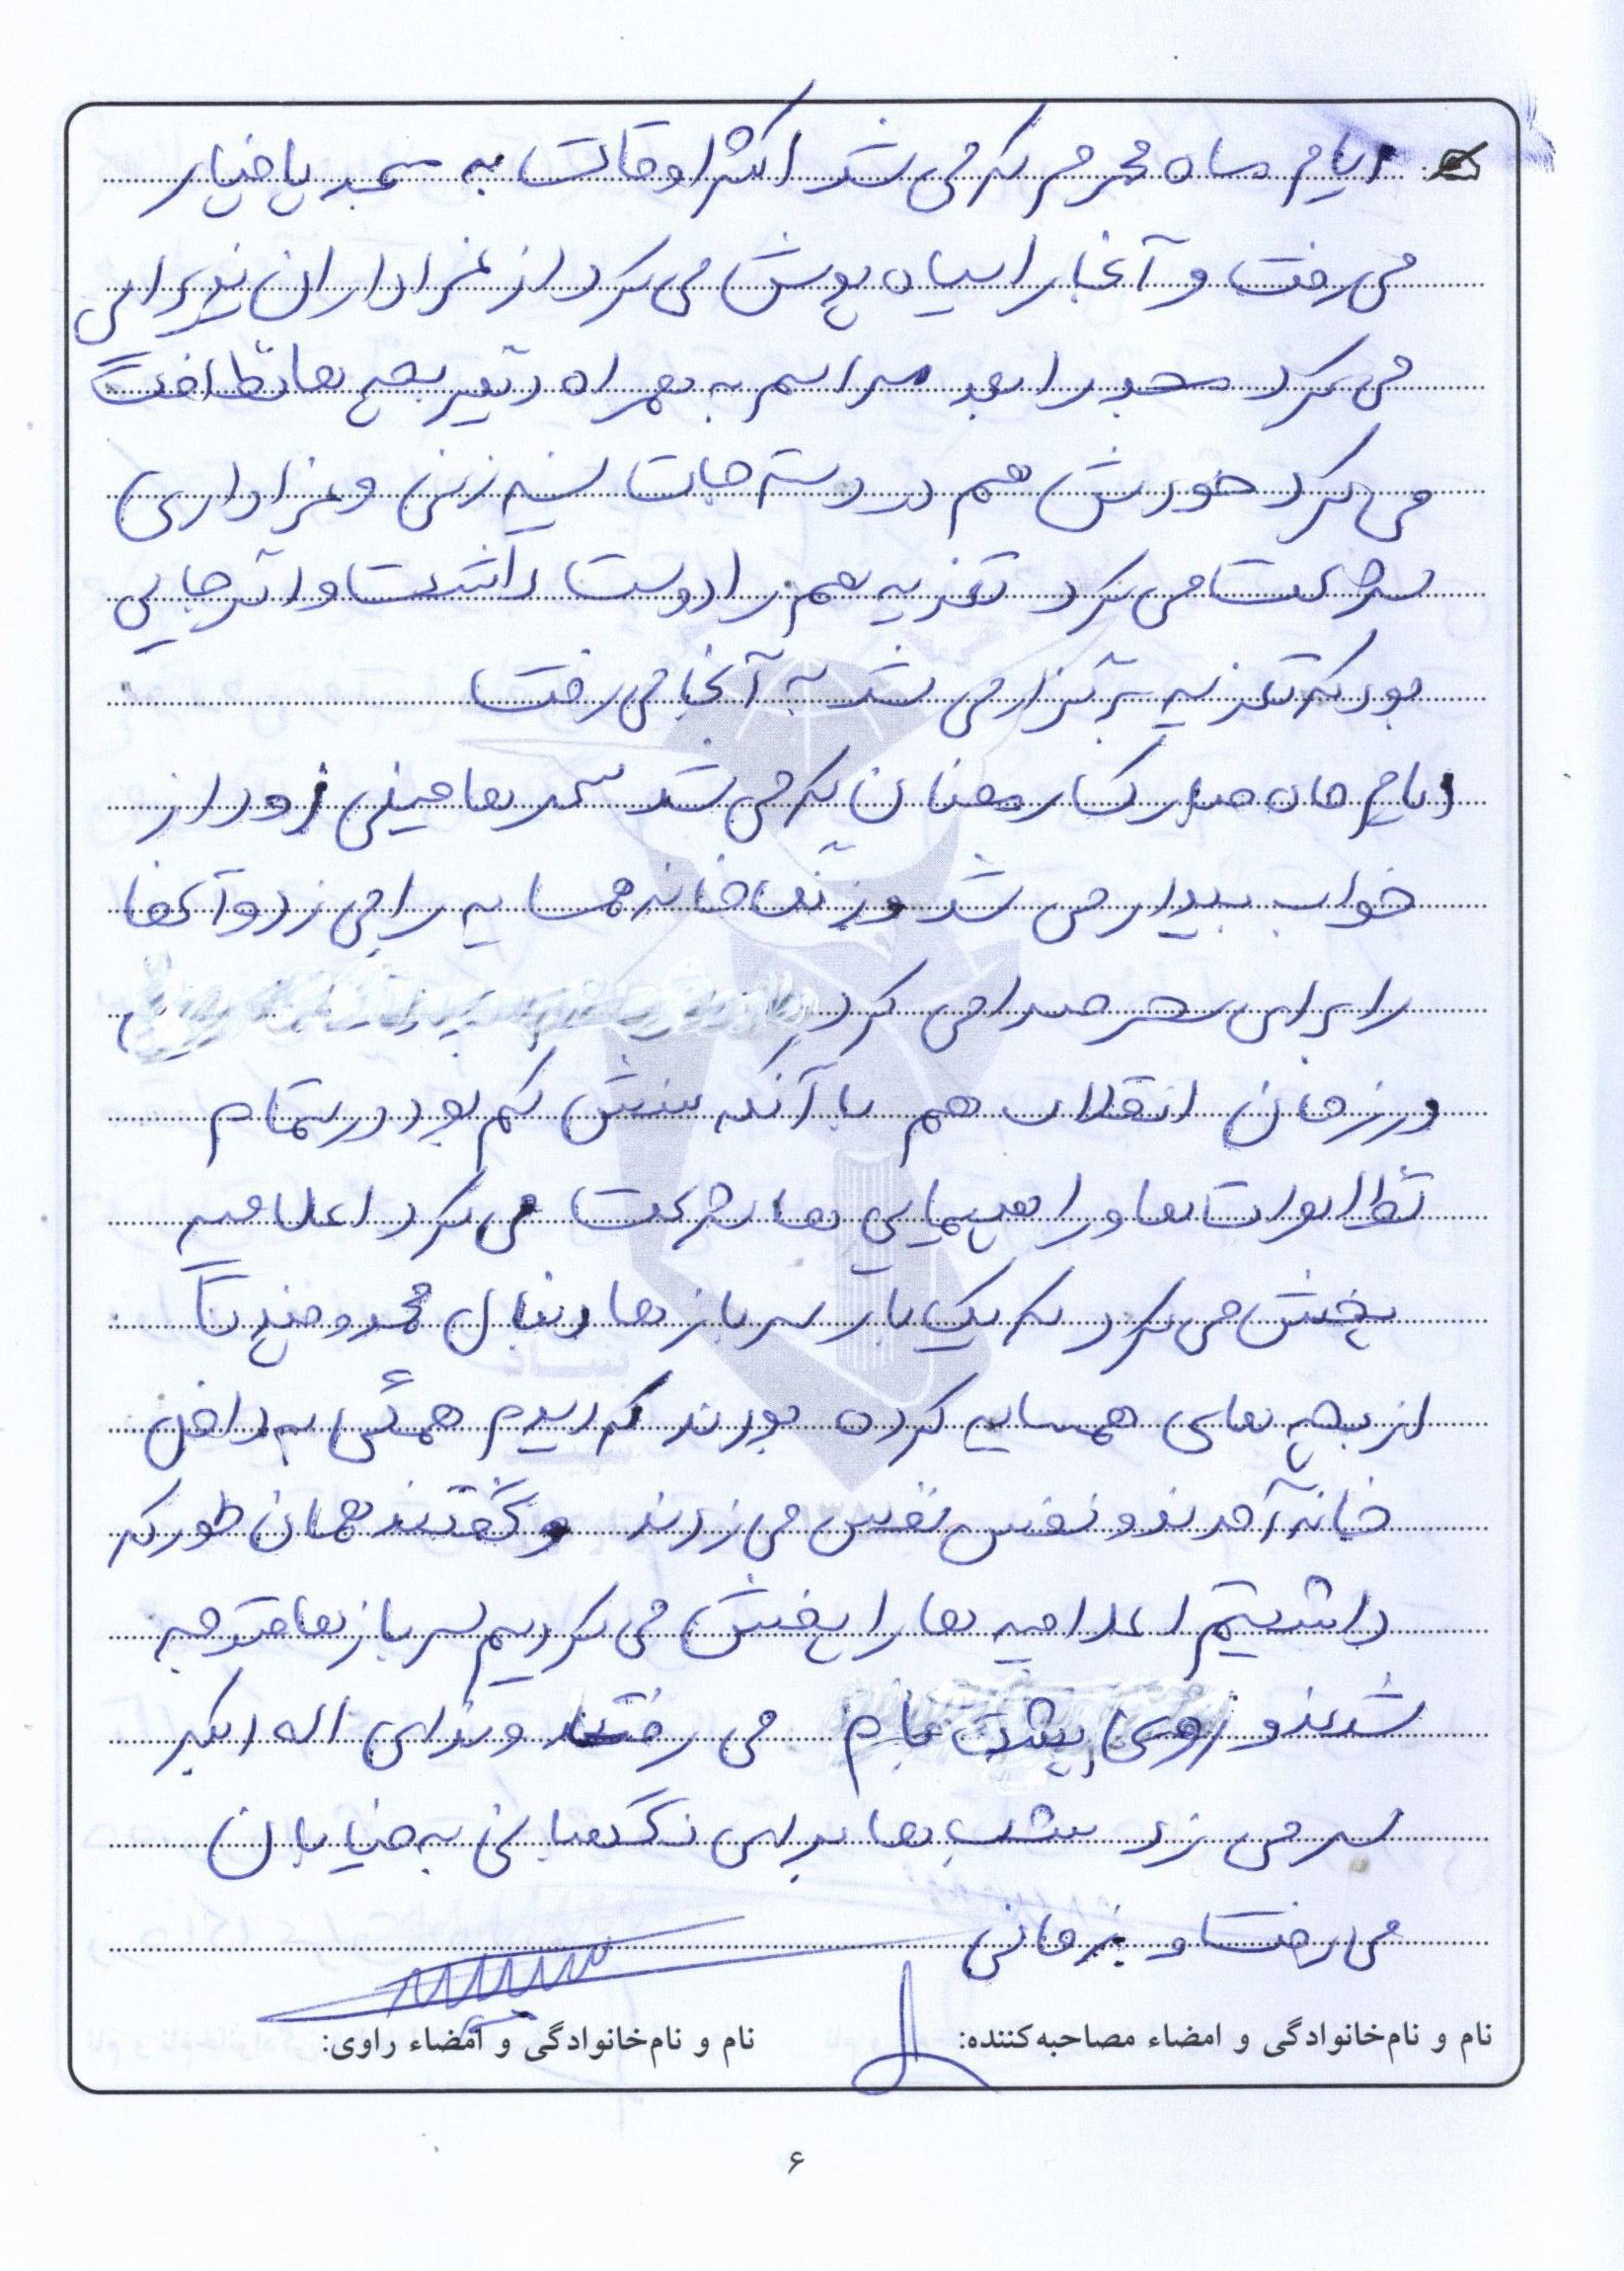 ایام ماه محرم که می شد اکثر اوقات به مسجد پاخیار
می رفت و آنجا را سیاه پوش می کرد از عزاداران پذیرایی
می کرد مسجد را بعد مراسم به همراه دیگر بچه ها نظافت
می کرد خودش هم در دسته جات سینه زنی و عزاداری
شرکت می کرد تعزیه هم را دوست داشت و اگر جایی
بود که تعزیه برگزار می شد به آنجا می رفت
ایام ماه مبارک رمضان که می شد سحرها خیلی زود از
خواب بیدار می شد و زنگ خانه همسایه را می زد و آنها
را برای سحر صدا می کرد
در زمان انقلاب هم با آنکه سنش کم بود در تمام
تظاهرات ها و راهپیمایی ها شرکت می کرد اعلامیه
پخش می کرد که یک بار سربازها دنبال محمد و چند تا
از بچه های همسایه کرده بودند که دیدم همگی به داخل
خانه آمدند و نفس نفس می زدند و گفتند همان طور که
داشتیم اعلامیه ها را پخش می کردیم سربازها متوجه
شدند و روی پشت بام می رفت و ندای اله اکبر
سر می زد شب ها برای نگهبانی به خیابان
می رفت و زمانی
نام و نام‌خانوادگی و امضاء مصاحبه‌کننده:
نام و نام‌خانوادگی و امضاء راوی:
۶